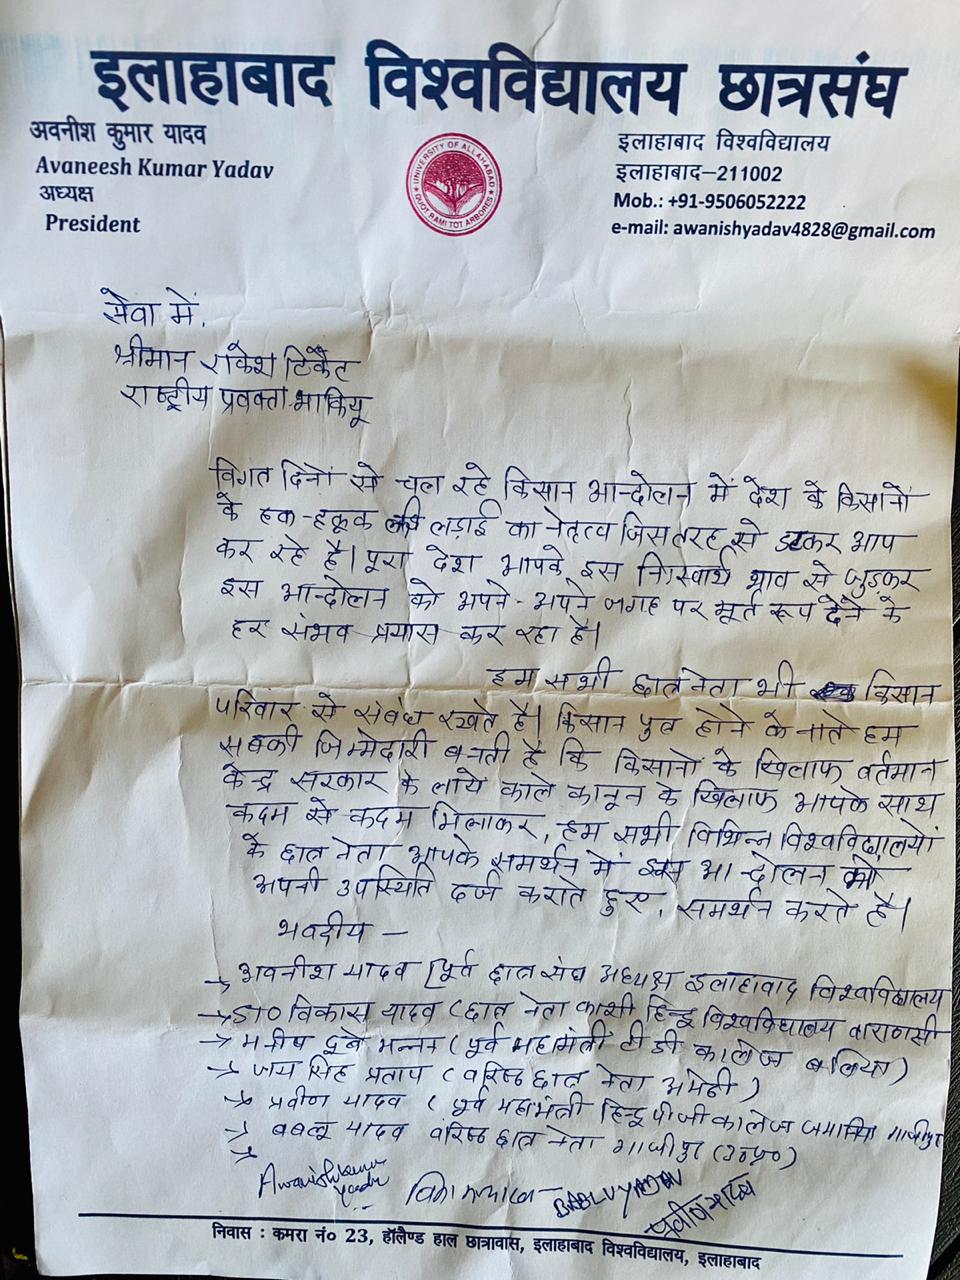 इलाहाबाद विश्वविद्यालय छात्रसंघ
अवनीश कुमार यादव
Avaneesh Kumar Yadav
अध्यक्ष
President
UNIVERSITY OF ALLAHABAD
QUOT RAMI TOT ARBORES
इलाहाबाद विश्वविद्यालय
इलाहाबाद–211002
Mob.: +91-9506052222
e-mail: awanishyadav4828@gmail.com
सेवा में,
श्रीमान राकेश टिकैट
राष्ट्रीय प्रवक्ता भाकियू
विगत दिनों से चल रहे किसान आन्दोलन में देश के किसानों
के हक-हकूक की लड़ाई का नेतृत्व जिस तरह से डटकर आप
कर रहे है। पूरा देश आपके इस निःस्वार्थ भाव से जुड़कर
इस आन्दोलन को अपने-अपने जगह पर मूर्त रूप देने के
हर संभव प्रयास कर रहा है।
हम सभी छात्र नेता भी किसान
परिवार से संबंध रखते है। किसान पुत्र होने के नाते हम
सबकी जिम्मेदारी बनती है कि किसानों के खिलाफ वर्तमान
केन्द्र सरकार के लाये काले कानून के खिलाफ आपके साथ
कदम से कदम मिलाकर, हम सभी विभिन्न विश्वविद्यालयों
के छात्र नेता आपके समर्थन में इस आन्दोलन को
अपनी उपस्थिति दर्ज कराते हुए, समर्थन करते है।
भवदीय —
→ अवनीश यादव (पूर्व छात्रसंघ अध्यक्ष इलाहाबाद विश्वविद्यालय
→ डा० विकास यादव (छात्र नेता काशी हिन्दू विश्वविद्यालय वाराणसी
→ मनीष दूबे मन्नन (पूर्व महामंत्री टी डी कालेज बलिया)
→ जय सिंह प्रताप (वरिष्ठ छात्र नेता अमेठी)
→ प्रवीण यादव (पूर्व महामंत्री हिन्दू पी जी कालेज जमानिया गाजीपुर
→ बबलू यादव वरिष्ठ छात्र नेता गाजीपुर (उ०प्र०)
→
Awanish kumar
Yadav
BABLU YADAV
प्रवीण यादव
निवास : कमरा नं० 23, हॉलैण्ड हाल छात्रावास, इलाहाबाद विश्वविद्यालय, इलाहाबाद